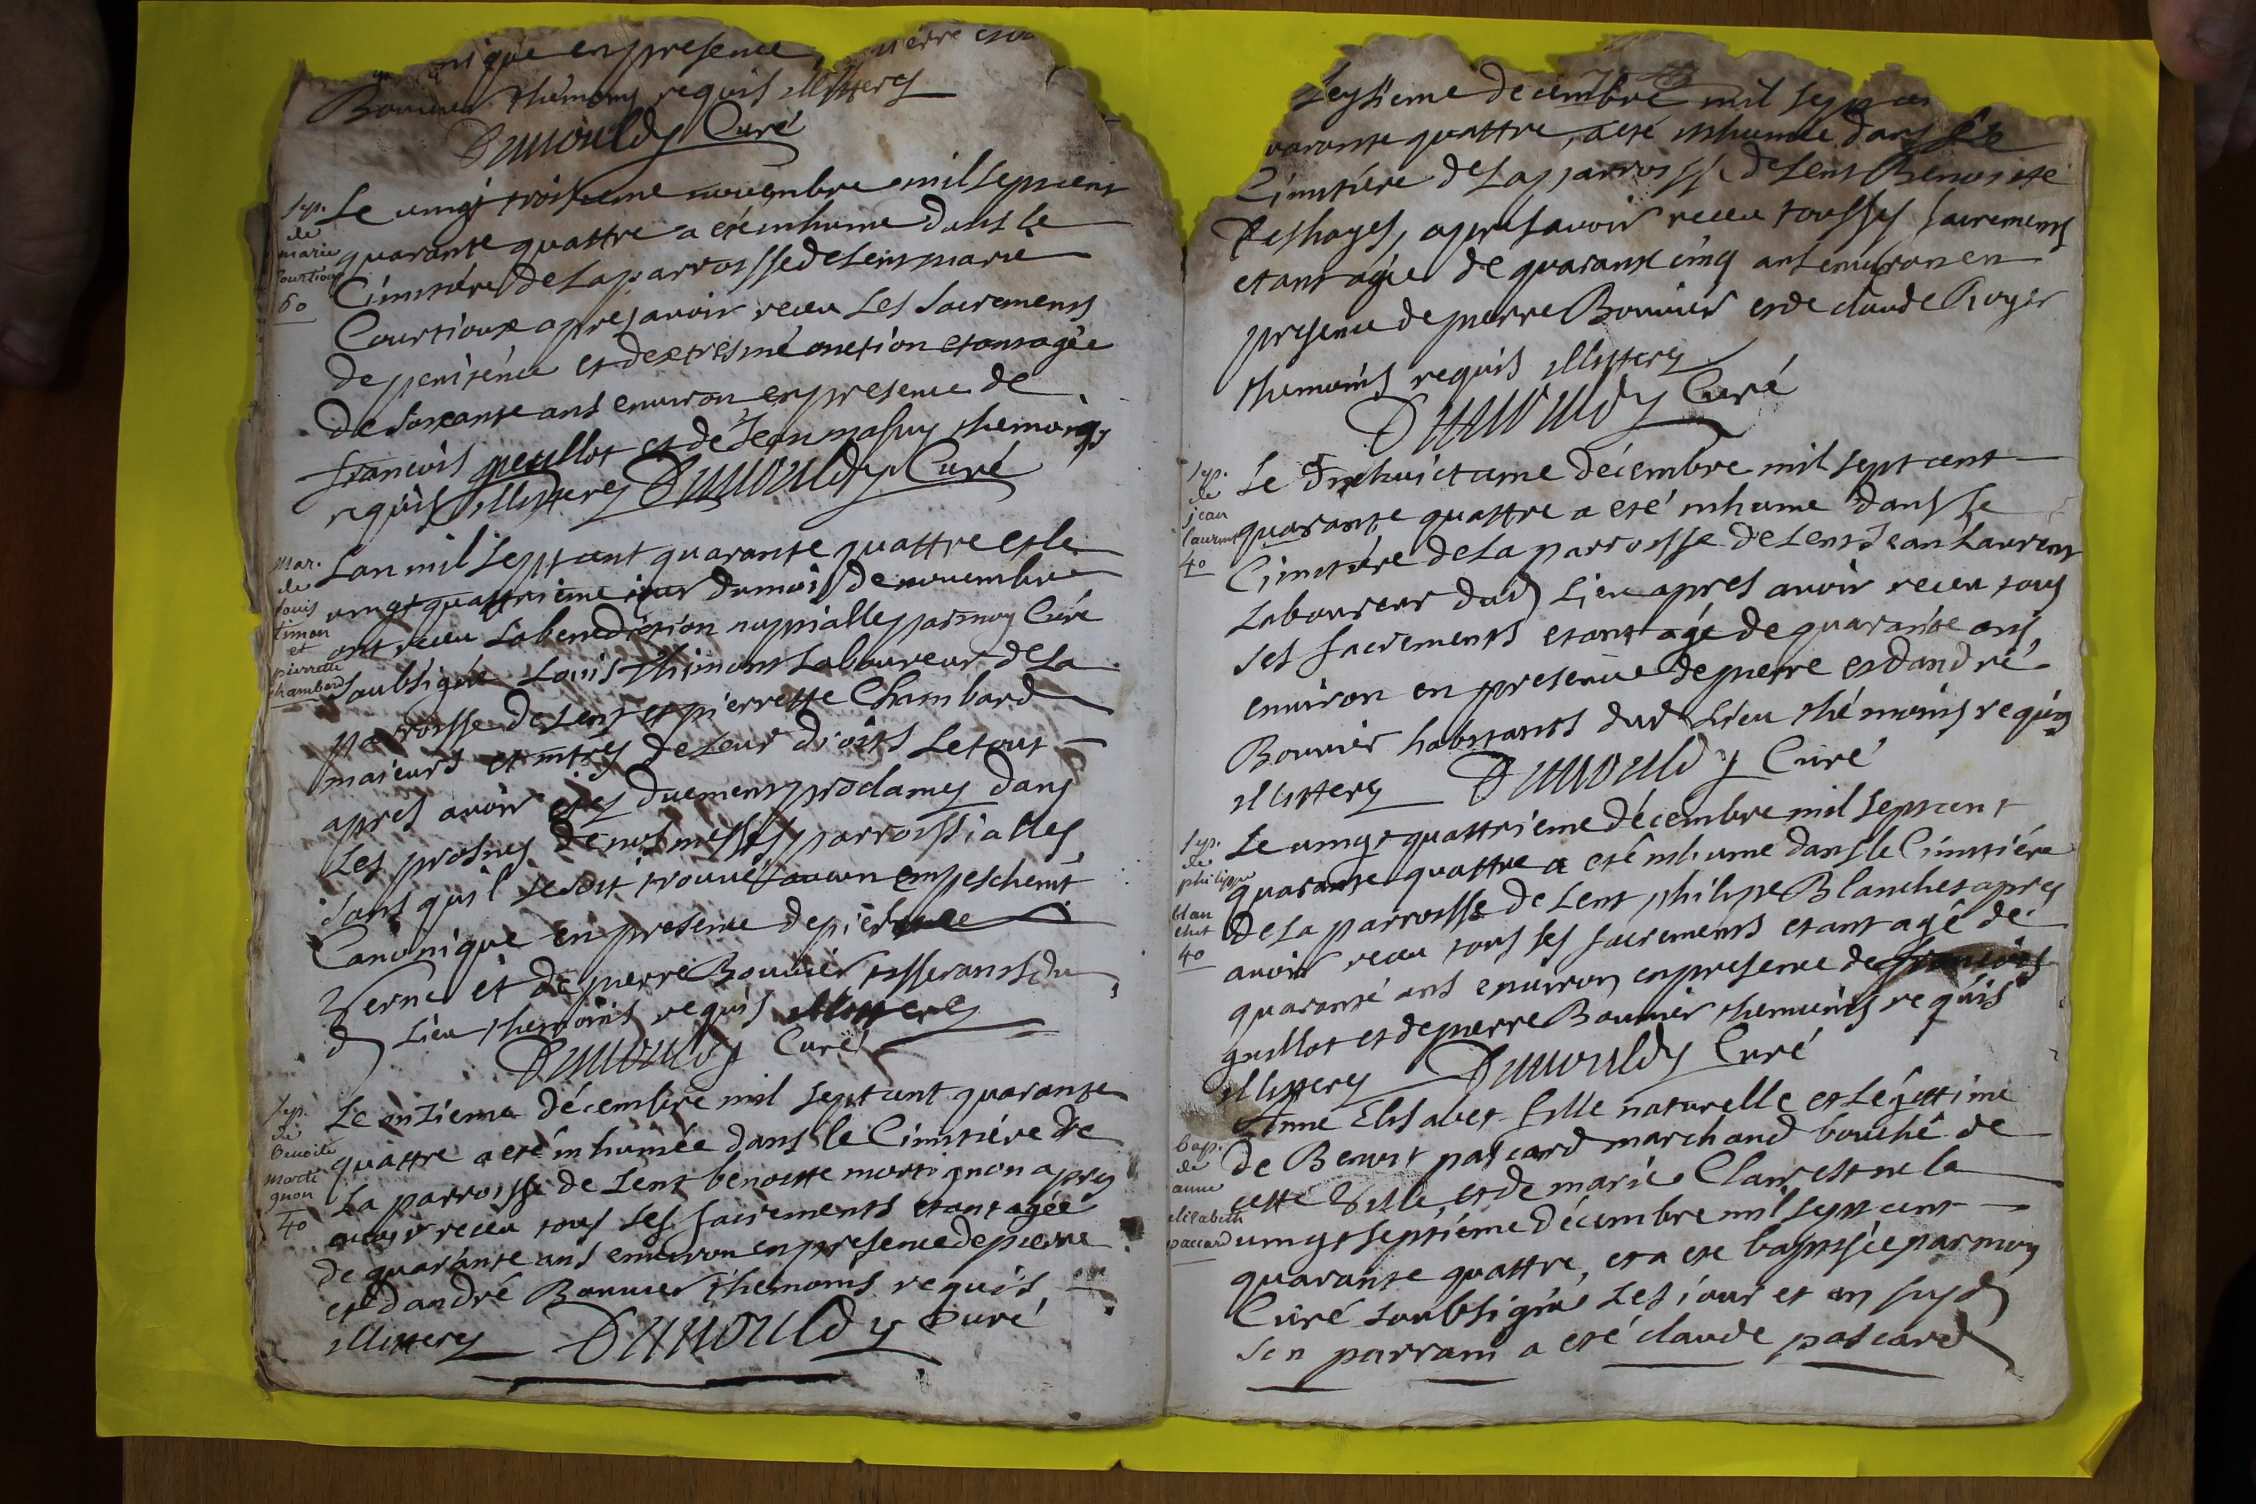 nique en presence pierre
Bouvier themoins requis illitterez
Dunouldy Curé
sep.
de
marie
Courtioux
60
Le vingt troisieme novembre mil sept cent
quarante quattre a eté inhumé dans le
Cimitiére de la parroisse de Lent marie
Courtioux apres avoir receu les Sacrements
de penitence et dextresme onction etant agée
de soixante ans environ en presence de
francois guillot et de Jean themoins
requis illitterez Dunouldy Curé
mar.
de
louis
timon
et
pierrette
chambard
Lan mil sept cent quarante quattre et le
vingt quattrieme jour du mois de novembre
ont receu la benediction nuptialle par moy Curé
soubsigné Louis Thimont laboureur de la
parroisse de Lent et pierrette Chambard
maieurs et mtres de leur droits le tout
apres avoir etez duement proclamez dans
les prosnes de nos messes parroissialles
sans qu'il se soit trouvé aucun empeschemt
Canonique en presence de pierre
Verne et de pierre Bouvier tisserants du
d lieu themoins requis illitterez
Dunouldy Curé
sep.
de
benoite
morti
gnon
40
Le onzieme décembre mil sept cent quarante
quattre a eté inhumée dans le Cimitiére de
la parroisse de Lent benoitte mortignon apres
avoir receu tous ses sacrements etant agée
de quarante ans environ en presence de pierre
et dandré Bouvier themoins requis
illitterez Dunouldy Curé
seysieme decembre mil sept cen
varante quattre, a eté inhumée dans le
Cimitiére de la parroisse de Lent Benoitte
Deshayes, apres avoir receu tous ses sacrements
etant agée de quarante cinq ans environ en
presence de pierre Bouvier et de claude Royer
themoins requis illitterez
Dunouldy Curé
sep.
de
jean
laurent
40
Le dixhuictieme décembre mil sept cent
quarante quattre a eté inhumé dans le
Cimitiére de la parroisse de Lent Jean Laurent
Laboureur dud lieu apres avoir receu tous
ses sacrements etant agé de quarante ans,
environ en presence de pierre et dandré
Bouvier habitants dud lieu thémoins requis
illitterez Dunouldy Curé
sep.
de
philippe
blan
chet
40
Le vingt quattrieme décembre mil sept cent
quarante quattre a eté inhumé dans le Cimitiére
de la parroisse de Lent philipe Blanchet apres
avoir receu tous ses sacrements etant agé de
quarante ans environ en presence de francois
guillot et de pierre Bouvier themoins requis
illitterez Dunouldy Curé
bap.
de
anne
elisabeth
paccard
Anne Elisabet fille naturelle et légittime
de Benoit pascard marchand bouché de
cette Ville, et de marie Clair est née le
vingt septiéme décembre mil sept cent
quarante quattre, et a eté baptisée par moy
Curé soubsigné les jour et an susd
son parrain a eté claude pascard